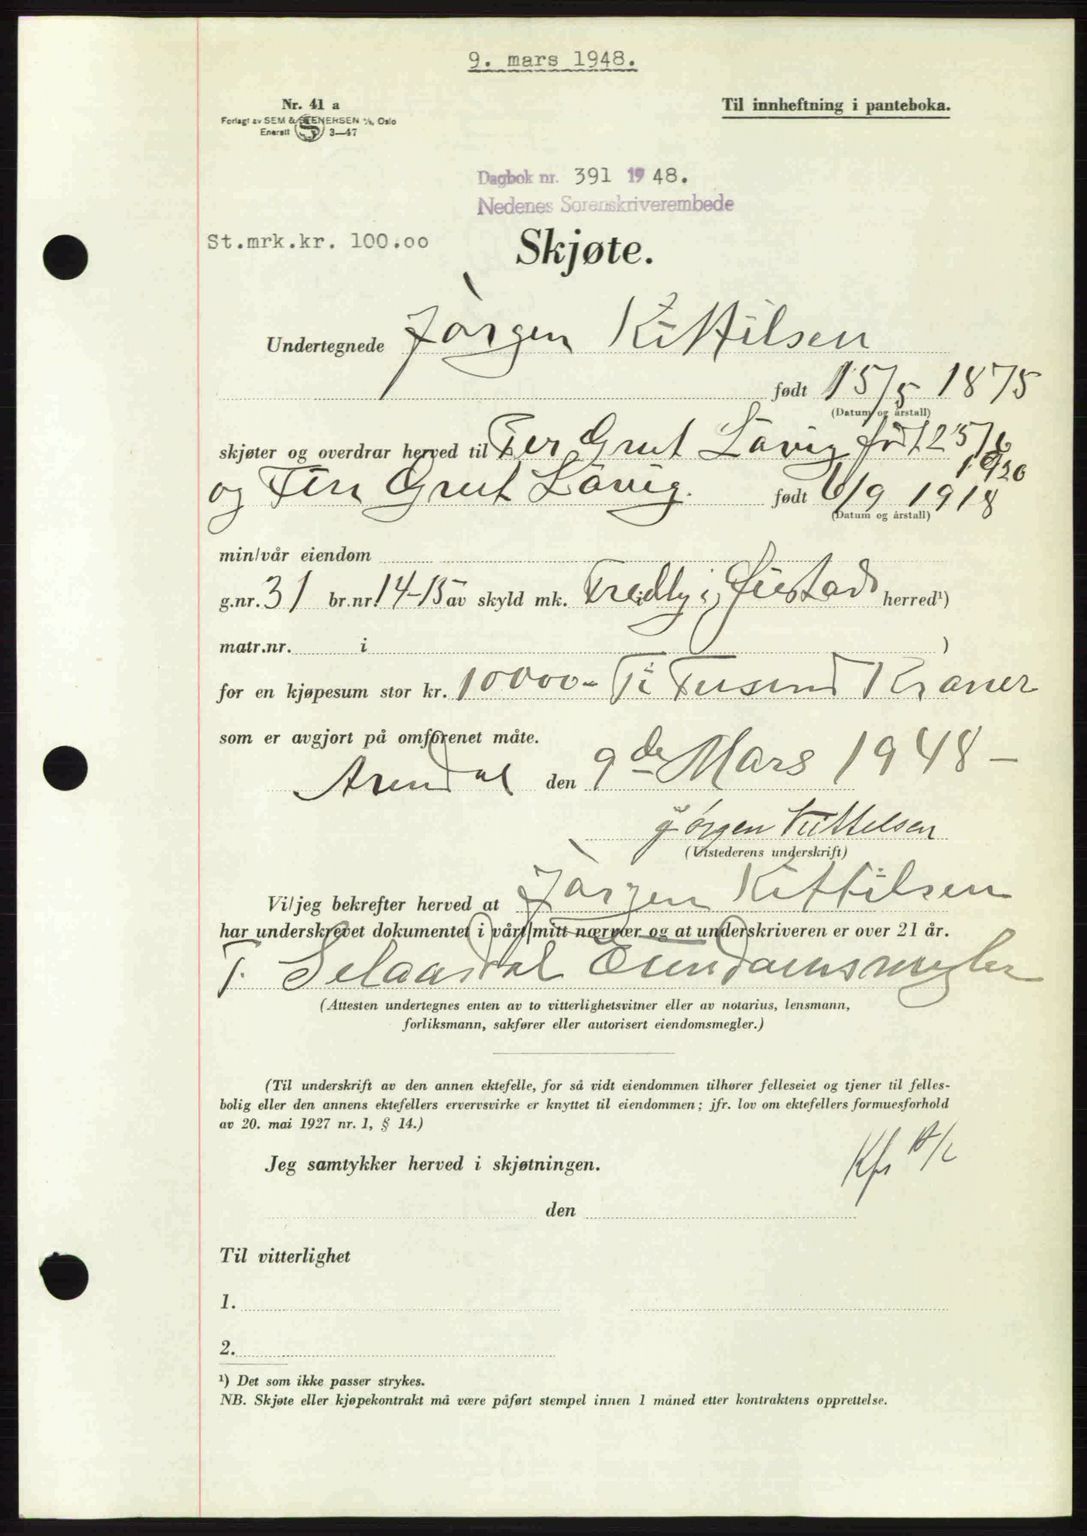 9. mars 1948.
Nr. 41 a
Til innheftning i panteboka.
Forlagt av SEM & STENERSEN A/S, Oslo
Enerett 3—47
Dagbok nr. 391 1948.
Nedenes Sorenskriverembede
St.mrk.kr. 100.00
Skjøte.
Undertegnede Jörgen Kittilsen
født 15/5 1875
(Datum og årstall)
skjøter og overdrar herved til Per Grut Lövig født 25/6
1920
og Finn Grut Lövig. født 6/9 1918
(Datum og årstall)
min/vår eiendom
g.nr. 31 br.nr. 14-15 av skyld mk. Fredly i Øiestad herred¹)
matr.nr. i )
for en kjøpesum stor kr. 10000- Ti Tusend Kroner
som er avgjort på omforenet måte.
Arendal den 9de Mars 1948 —
Jörgen Kittelsen
(Utstederens underskrift)
Vi/jeg bekrefter herved at Jörgen Kittilsen
har underskrevet dokumentet i vårt/mitt nærvær og at underskriveren er over 21 år.
T. Selaasdal Eiendomsmegler
(Attesten undertegnes enten av to vitterlighetsvitner eller av notarius, lensmann,
forliksmann, sakfører eller autorisert eiendomsmegler.)
(Til underskrift av den annen ektefelle, for så vidt eiendommen tilhører felleseiet og tjener til felles-
bolig eller den annens ektefellers ervervsvirke er knyttet til eiendommen; jfr. lov om ektefellers formuesforhold
av 20. mai 1927 nr. 1, § 14.)
Jeg samtykker herved i skjøtningen.
den
Til vitterlighet
1.
2.
¹) Det som ikke passer strykes.
NB. Skjøte eller kjøpekontrakt må være påført stempel innen 1 måned etter kontraktens opprettelse.